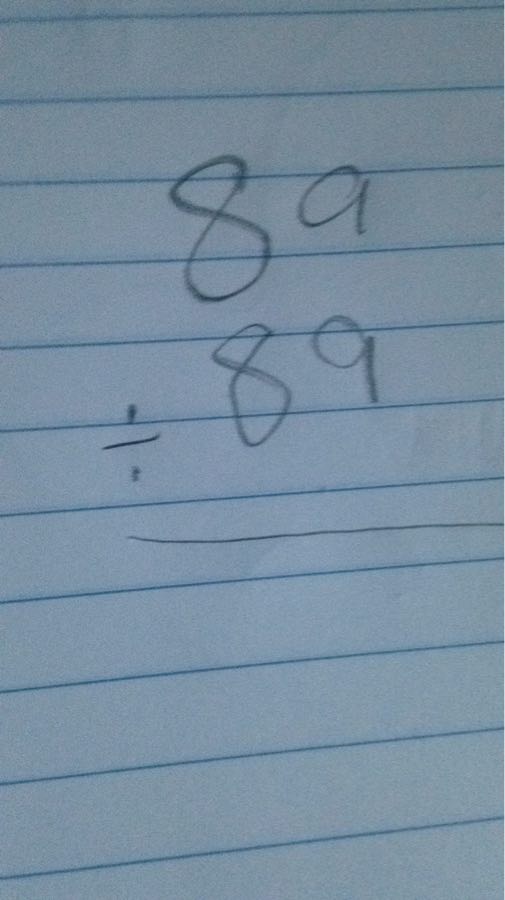 89
÷ 89